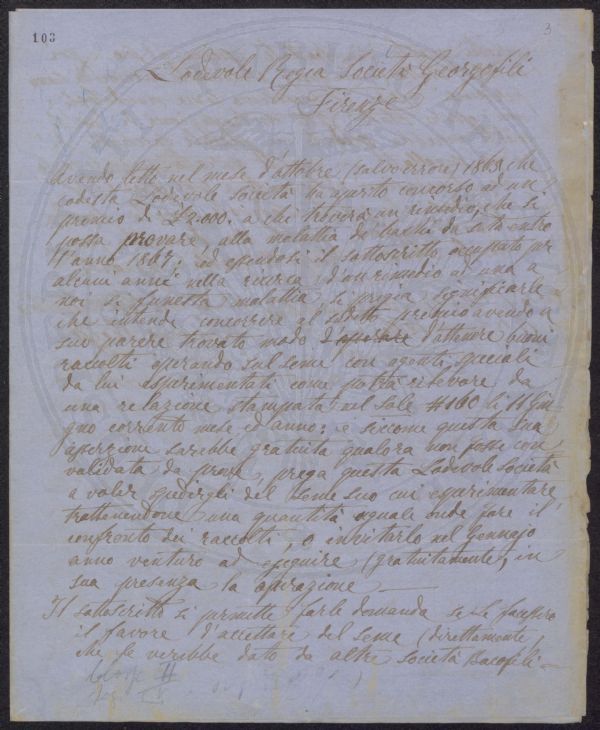 103
3
Lodevole Regia Società Georgofili
Firenze
Avendo letto nel mese d'ottobre (salvo errore) 1863 che
codesta Lodevole Società ha aperto concorso ad un
premio di £2.000. a chi troverà un rimedio, che si
possa provare, alla malattia dei bachi da seta entro
l'anno 1867. ed essendosi il sottoscritto occupato per
alcuni anni nella ricerca d'un rimedio ad una a
noi sì funesta malattia, si pregia significarle
che intende concorrere al premio avendo a
suo parere trovato modo d'ottenere buoni
raccolti operando sul seme con agenti speciali
da lui esperimentati come potrà rilevare da
una relazione stampata nel Sole #160 li 11 Giu
gno corrente mese ed anno: e siccome questa sua
asserzione sarebbe gratuita qualora non fosse con
validata da prove, prega questa Lodevole Società
a voler spedirgli del seme suo cui esperimentare,
trattenendone una quantità uguale onde fare il
confronto dei raccolti, o invitarlo nel Gennajo
anno venturo ad eseguire (gratuitamente) in
sua presenza la operazione —
Il sottoscritto si permette farle domanda se le
il favore d'accettare del seme (direttamente)
che le verrebbe dato da altre società Bacofili —